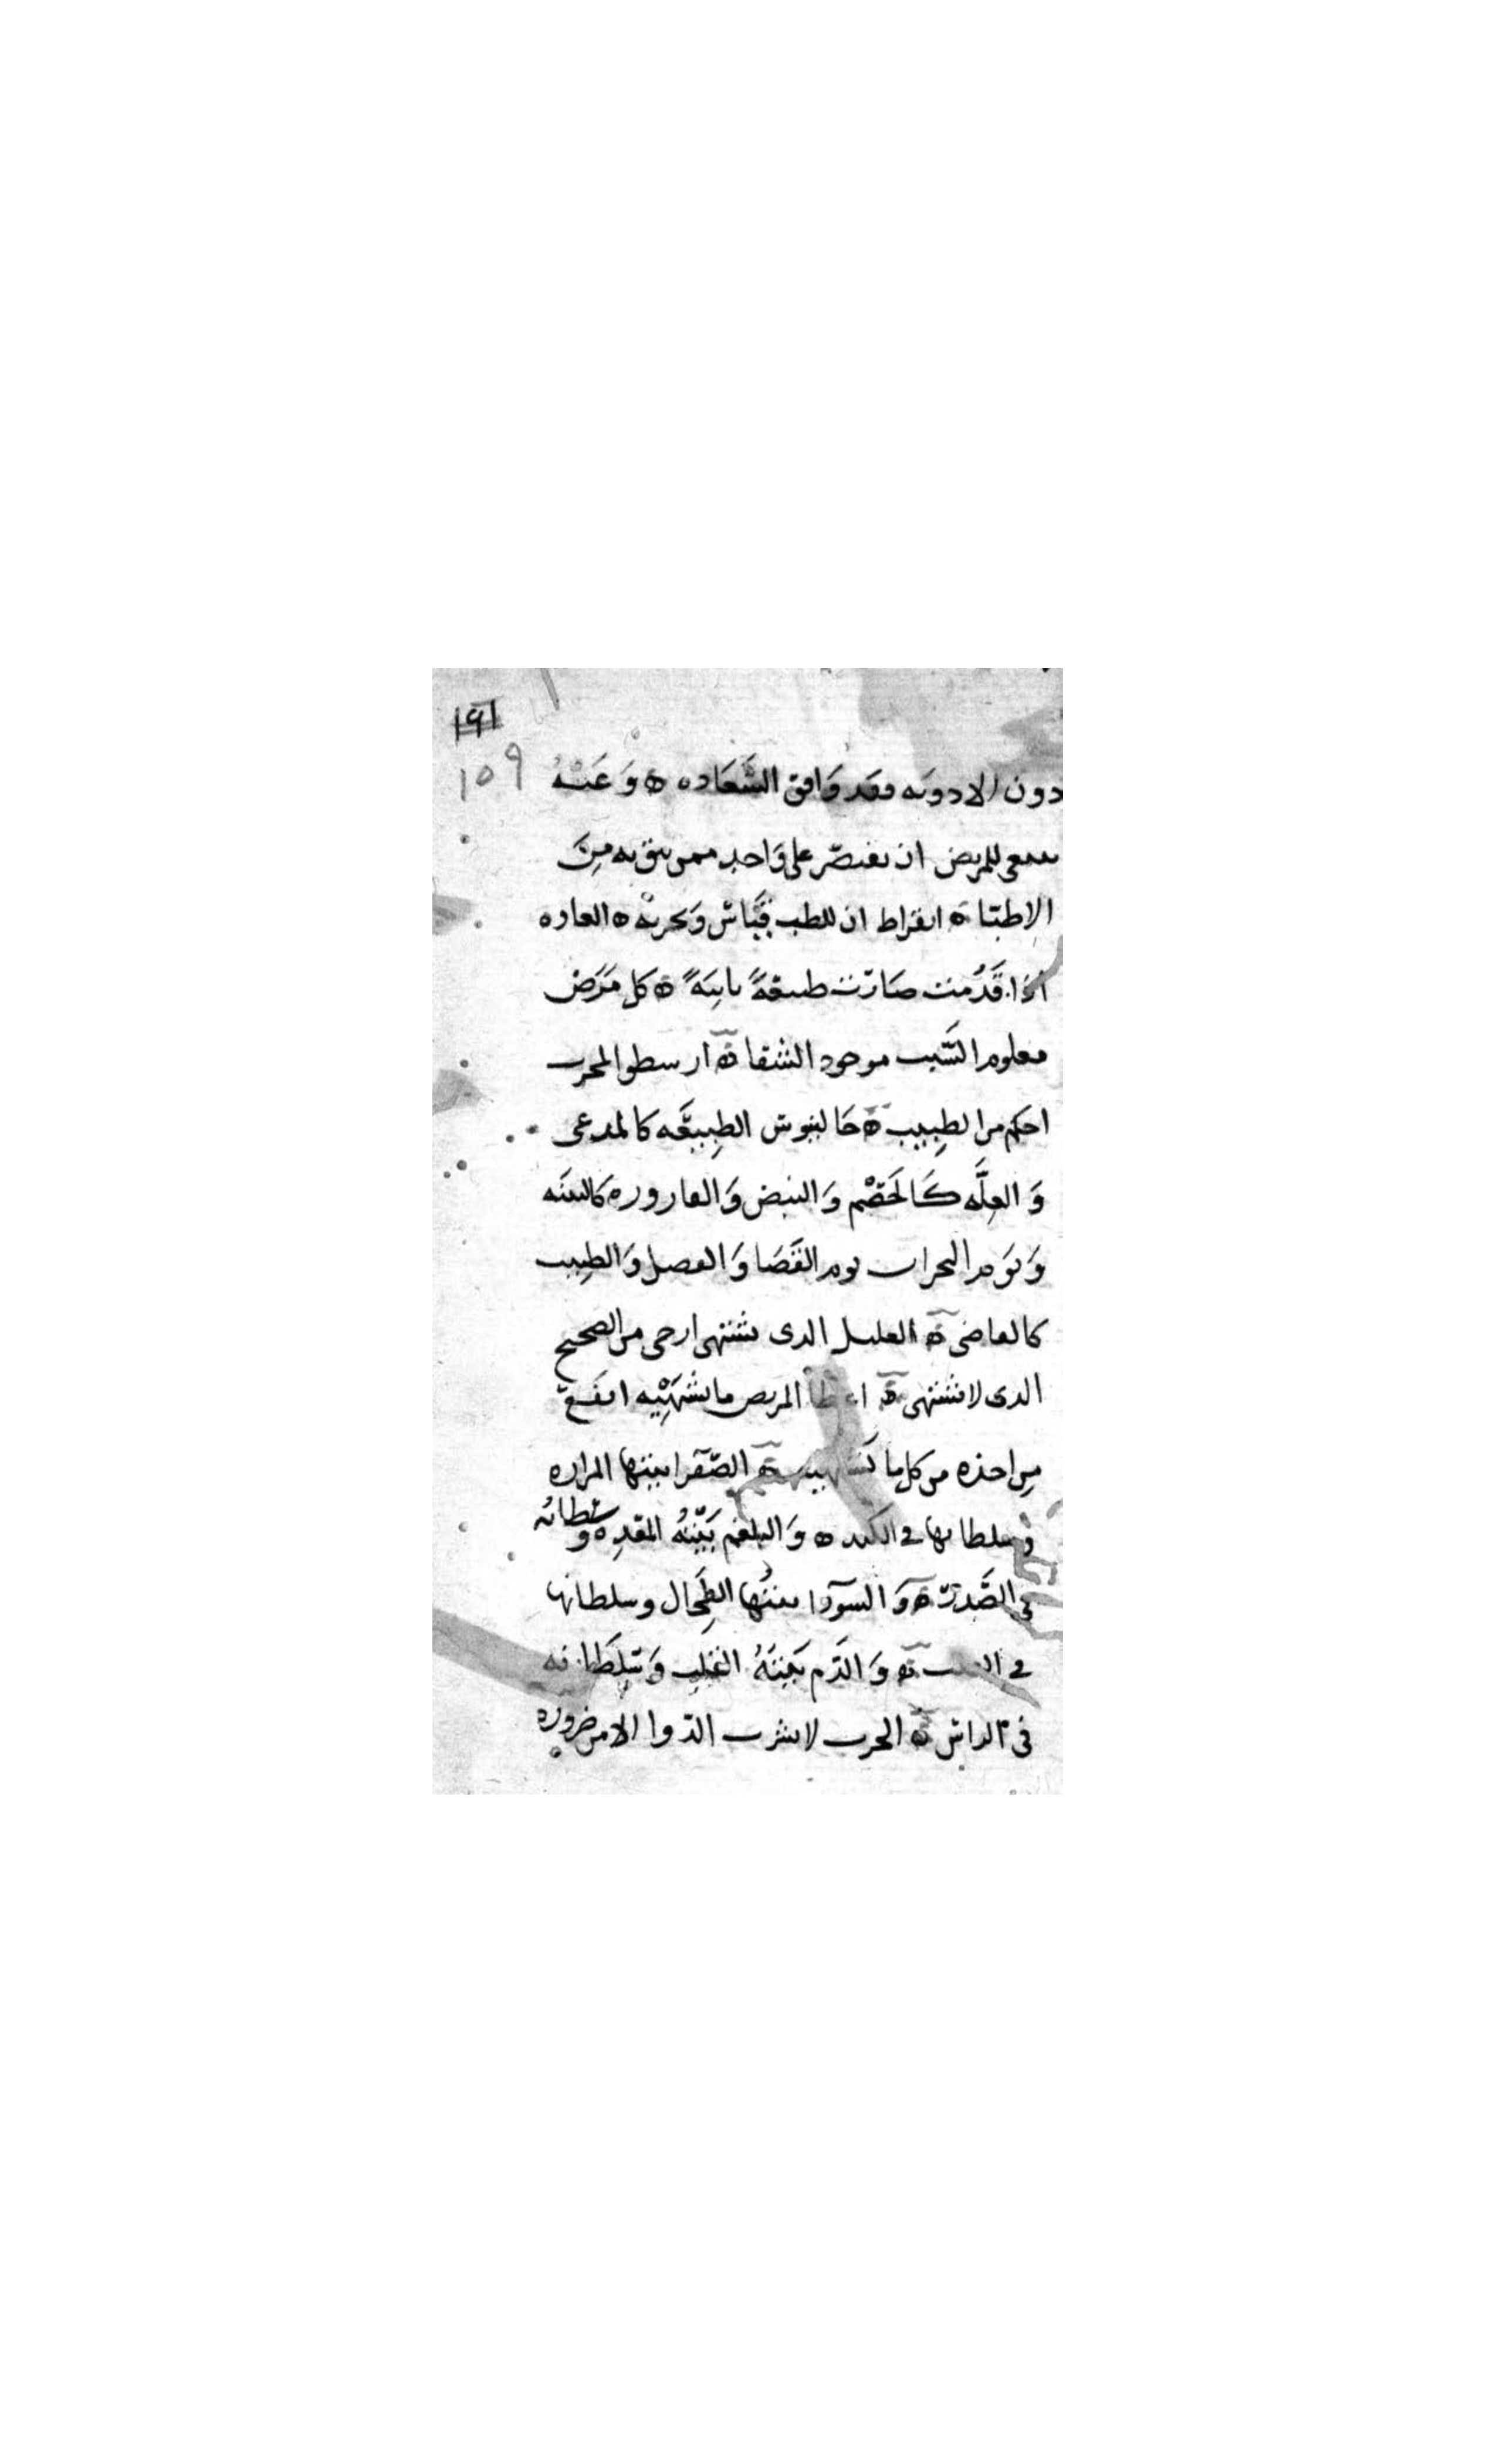 ١٩١
١٥٩
دون الادويه فقد وَافق السَّعَاده ه وَعَنْهُ
ينبغى للمريض ان يقتصّر على وَاحدٍ ممن يثق به مِنَ
الاطبّا ه ابقراط ان للطب قيَاسٌ وَتجربَه ه العاده
اذا قَدُمت صَارَت طبيعَةً ثانِيَةً ه كل مَرَضٍ
معلوم السَّبب موجود الشفا ه ارسطو المجرب
احكم من الطبِيب ه جَالينوس الطبِيعَه كالمدعى
وَالعِلَّه كَالخَصْم وَالنبض وَالقاروره كالبينَه
وَيَوم البحران يوم القَضَا وَالفصل وَالطبِيب
كالقاضى ه العليل الذى يشتهى ارجى من الصحيح
الذى لا يشتهى ه اعطا المريض ما يشتَهْيه انفع
مِن اخذه من كل ما لا يشتهيه ه الصّفرا بيتها المراره
وَسلطانها فى الكبد ه وَالبلغم بَيْتهُ المعدِه وَسُلطانُه
فى الصَّدر ه وَالسَّودا بيتُها الطِحَال وسلطانها
فى القلب ه وَالدَّم بَيتَهُ القلب وَسُلطَانه
فى الراس ه الحرث لا تشرب الدّوا الا من ضروره